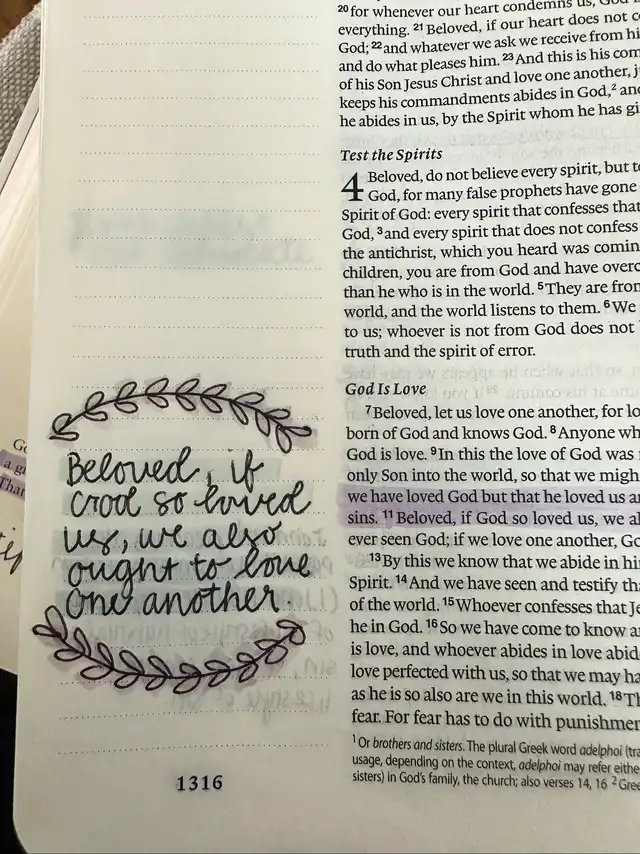 20 for whenever our heart condemns us, God
everything. 21 Beloved, if our heart does not
God; 22 and whatever we ask we receive from
and do what pleases him. 23 And this is his
of his Son Jesus Christ and love one another,
keeps his commandments abides in God,2
he abides in us, by the Spirit whom he has
Test the Spirits
4 Beloved, do not believe every spirit, but
God, for many false prophets have gone
Spirit of God: every spirit that confesses that
God, 3 and every spirit that does not confess
the antichrist, which you heard was
children, you are from God and have
than he who is in the world. 5 They are
world, and the world listens to them. 6 We
to us; whoever is not from God does not
truth and the spirit of error.
God Is Love
7 Beloved, let us love one another, for
born of God and knows God. 8 Anyone
God is love. 9 In this the love of God was
only Son into the world, so that we
we have loved God but that he loved us
sins. 11 Beloved, if God so loved us, we
ever seen God; if we love one another,
13 By this we know that we abide in
Spirit. 14 And we have seen and testify
of the world. 15 Whoever confesses that
he in God. 16 So we have come to know
is love, and whoever abides in love
love perfected with us, so that we may
as he is so also are we in this world. 18
fear. For fear has to do with
1 Or brothers and sisters. The plural Greek word adelphoi
usage, depending on the context, adelphoi may refer
sisters) in God's family, the church; also verses 14, 16 2
Beloved, if
God so loved
us, we also
ought to love
one another.
1316